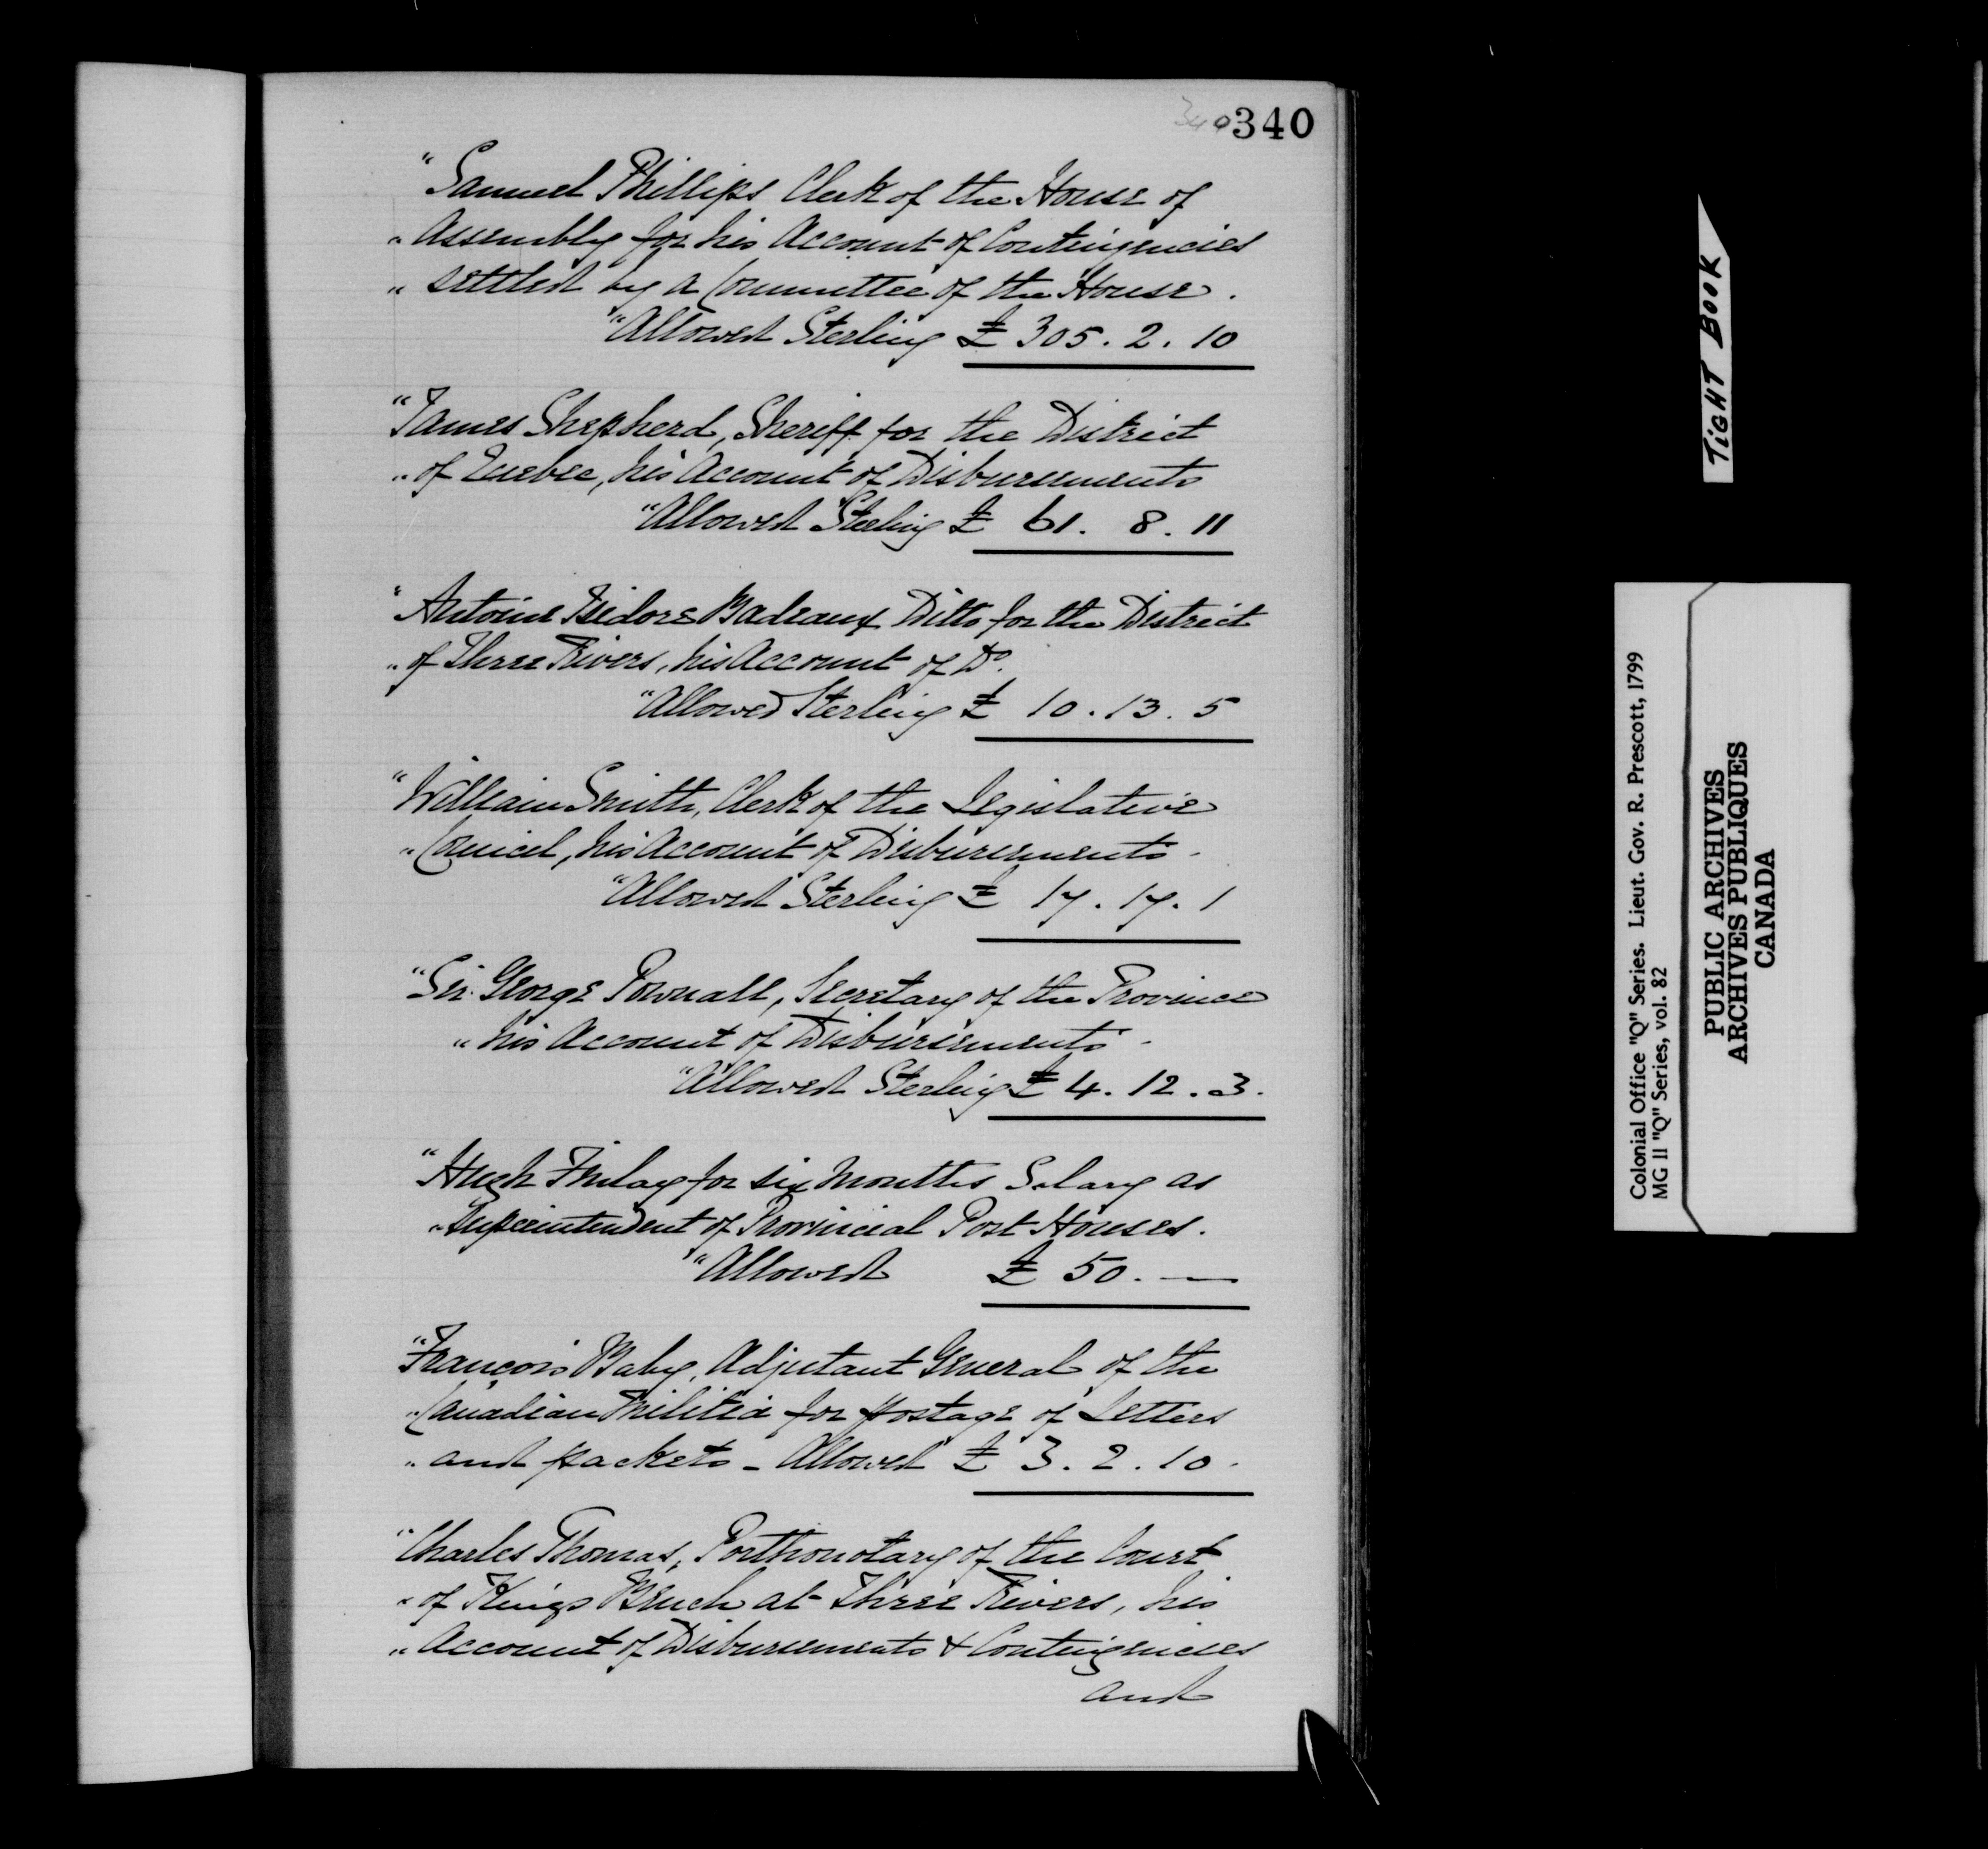 340 340
"Samuel Phillips Clerk of the House of
" Assembly for his Account of Contingencies
" settled by a Committee of the House.
"Allowed Sterling £ 305. 2. 10
"James Shepherd, Sheriff for the District
" of Quebec, his Account of Disbursements
"Allowed Sterling £ 61. 8. 11
"Antoine Isidore Badeaux Ditto for the District
" of Three Rivers, his Account of Do.
"Allowed Sterling £ 10. 13. 5
"William Smith, Clerk of the Legislative
" Council, his Account of Disbursements -
"Allowed Sterling £ 17. 17. 1
"Sir George Pownall, Secretary of the Province
" his Account of Disbursements -
"Allowed Sterling £ 4. 12. 3.
"Hugh Finlay for six Months Salary as
" Superintendent of Provincial Post Houses.
"Allowed £ 50. —
"François Baby, Adjutant General of the
" Canadian Militia for Postage of Letters
" and packets - Allowed £ 3. 2. 10.
"Charles Thomas, Porthonotary of the Court
" of Kings Bench at Three Rivers, his
" Account of Disbursements & Contingencies
and
TIGHT BOOK
Colonial Office "Q" Series. Lieut. Gov. R. Prescott, 1799
MG 11 "Q" Series, vol. 82
PUBLIC ARCHIVES
ARCHIVES PUBLIQUES
CANADA